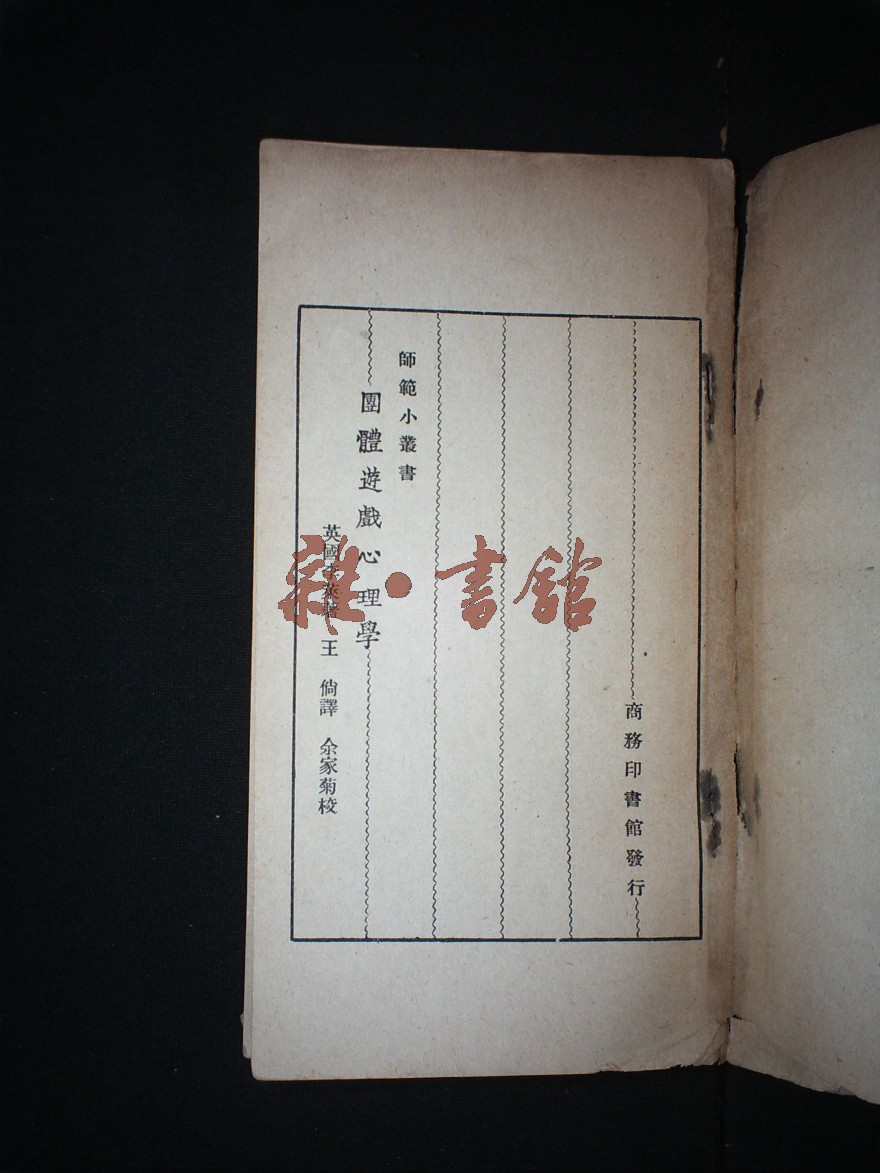 商務印書館發行
師範小叢書
團體遊戲心理學
英國李萊著 王倘譯 余家菊校
雜·書館